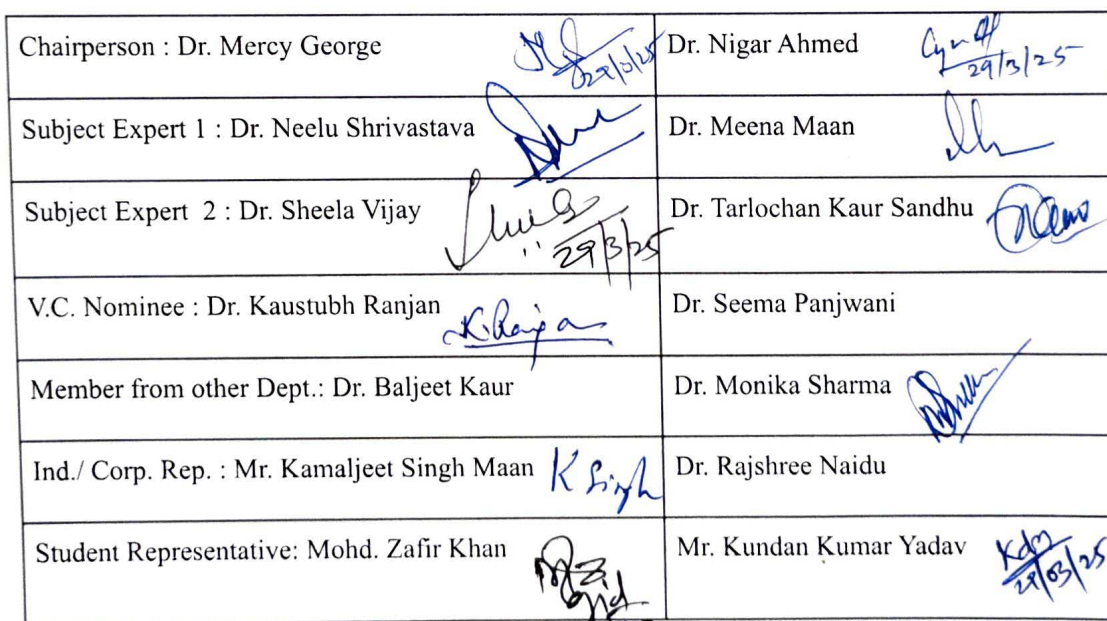 Chairperson : Dr. Mercy George
Dr. Nigar Ahmed
29/3/25
Subject Expert 1 : Dr. Neelu Shrivastava
Dr. Meena Maan
Subject Expert 2 : Dr. Sheela Vijay
29/3/25
Dr. Tarlochan Kaur Sandhu
V.C. Nominee : Dr. Kaustubh Ranjan
K. Ranjan
Dr. Seema Panjwani
Member from other Dept.: Dr. Baljeet Kaur
Dr. Monika Sharma
Ind./ Corp. Rep. : Mr. Kamaljeet Singh Maan
K Singh
Dr. Rajshree Naidu
Student Representative: Mohd. Zafir Khan
Mr. Kundan Kumar Yadav